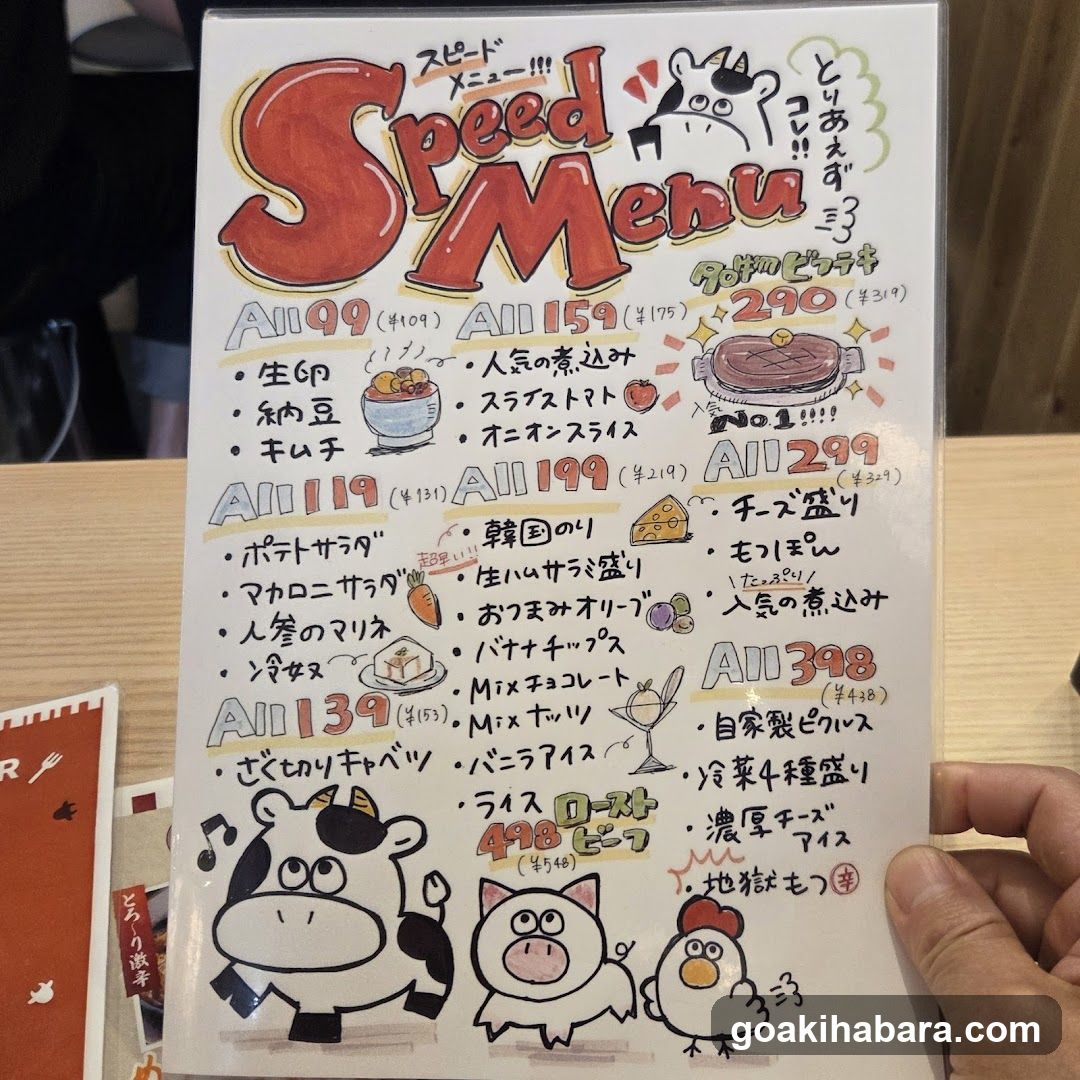 スピード
メニュー!!!
Speed
Menu
とりあえず
コレ!!
All 99 (¥109)
・生卵
・納豆
・キムチ
All 119 (¥131)
・ポテトサラダ
・マカロニサラダ
・人参のマリネ
・冷奴
All 139 (¥153)
・ざく切りキャベツ
All 159 (¥175)
・人気の煮込み
・スライストマト
・オニオンスライス
All 199 (¥219)
超早い!!
・韓国のり
・生ハムサラミ盛り
・おつまみオリーブ
・バナナチップス
・Mixチョコレート
・Mixナッツ
・バニラアイス
・ライス
ローストビーフ
498
(¥548)
名物ビフテキ
290 (¥319)
人気
No.1!!!!
All 299
(¥329)
・チーズ盛り
・もつぽん
\たっぷり/
・人気の煮込み
All 398
(¥438)
・自家製ピクルス
・冷菜4種盛り
・濃厚チーズ
アイス
・地獄もつ 辛
R
とろ〜り激辛
め
goakihabara.com